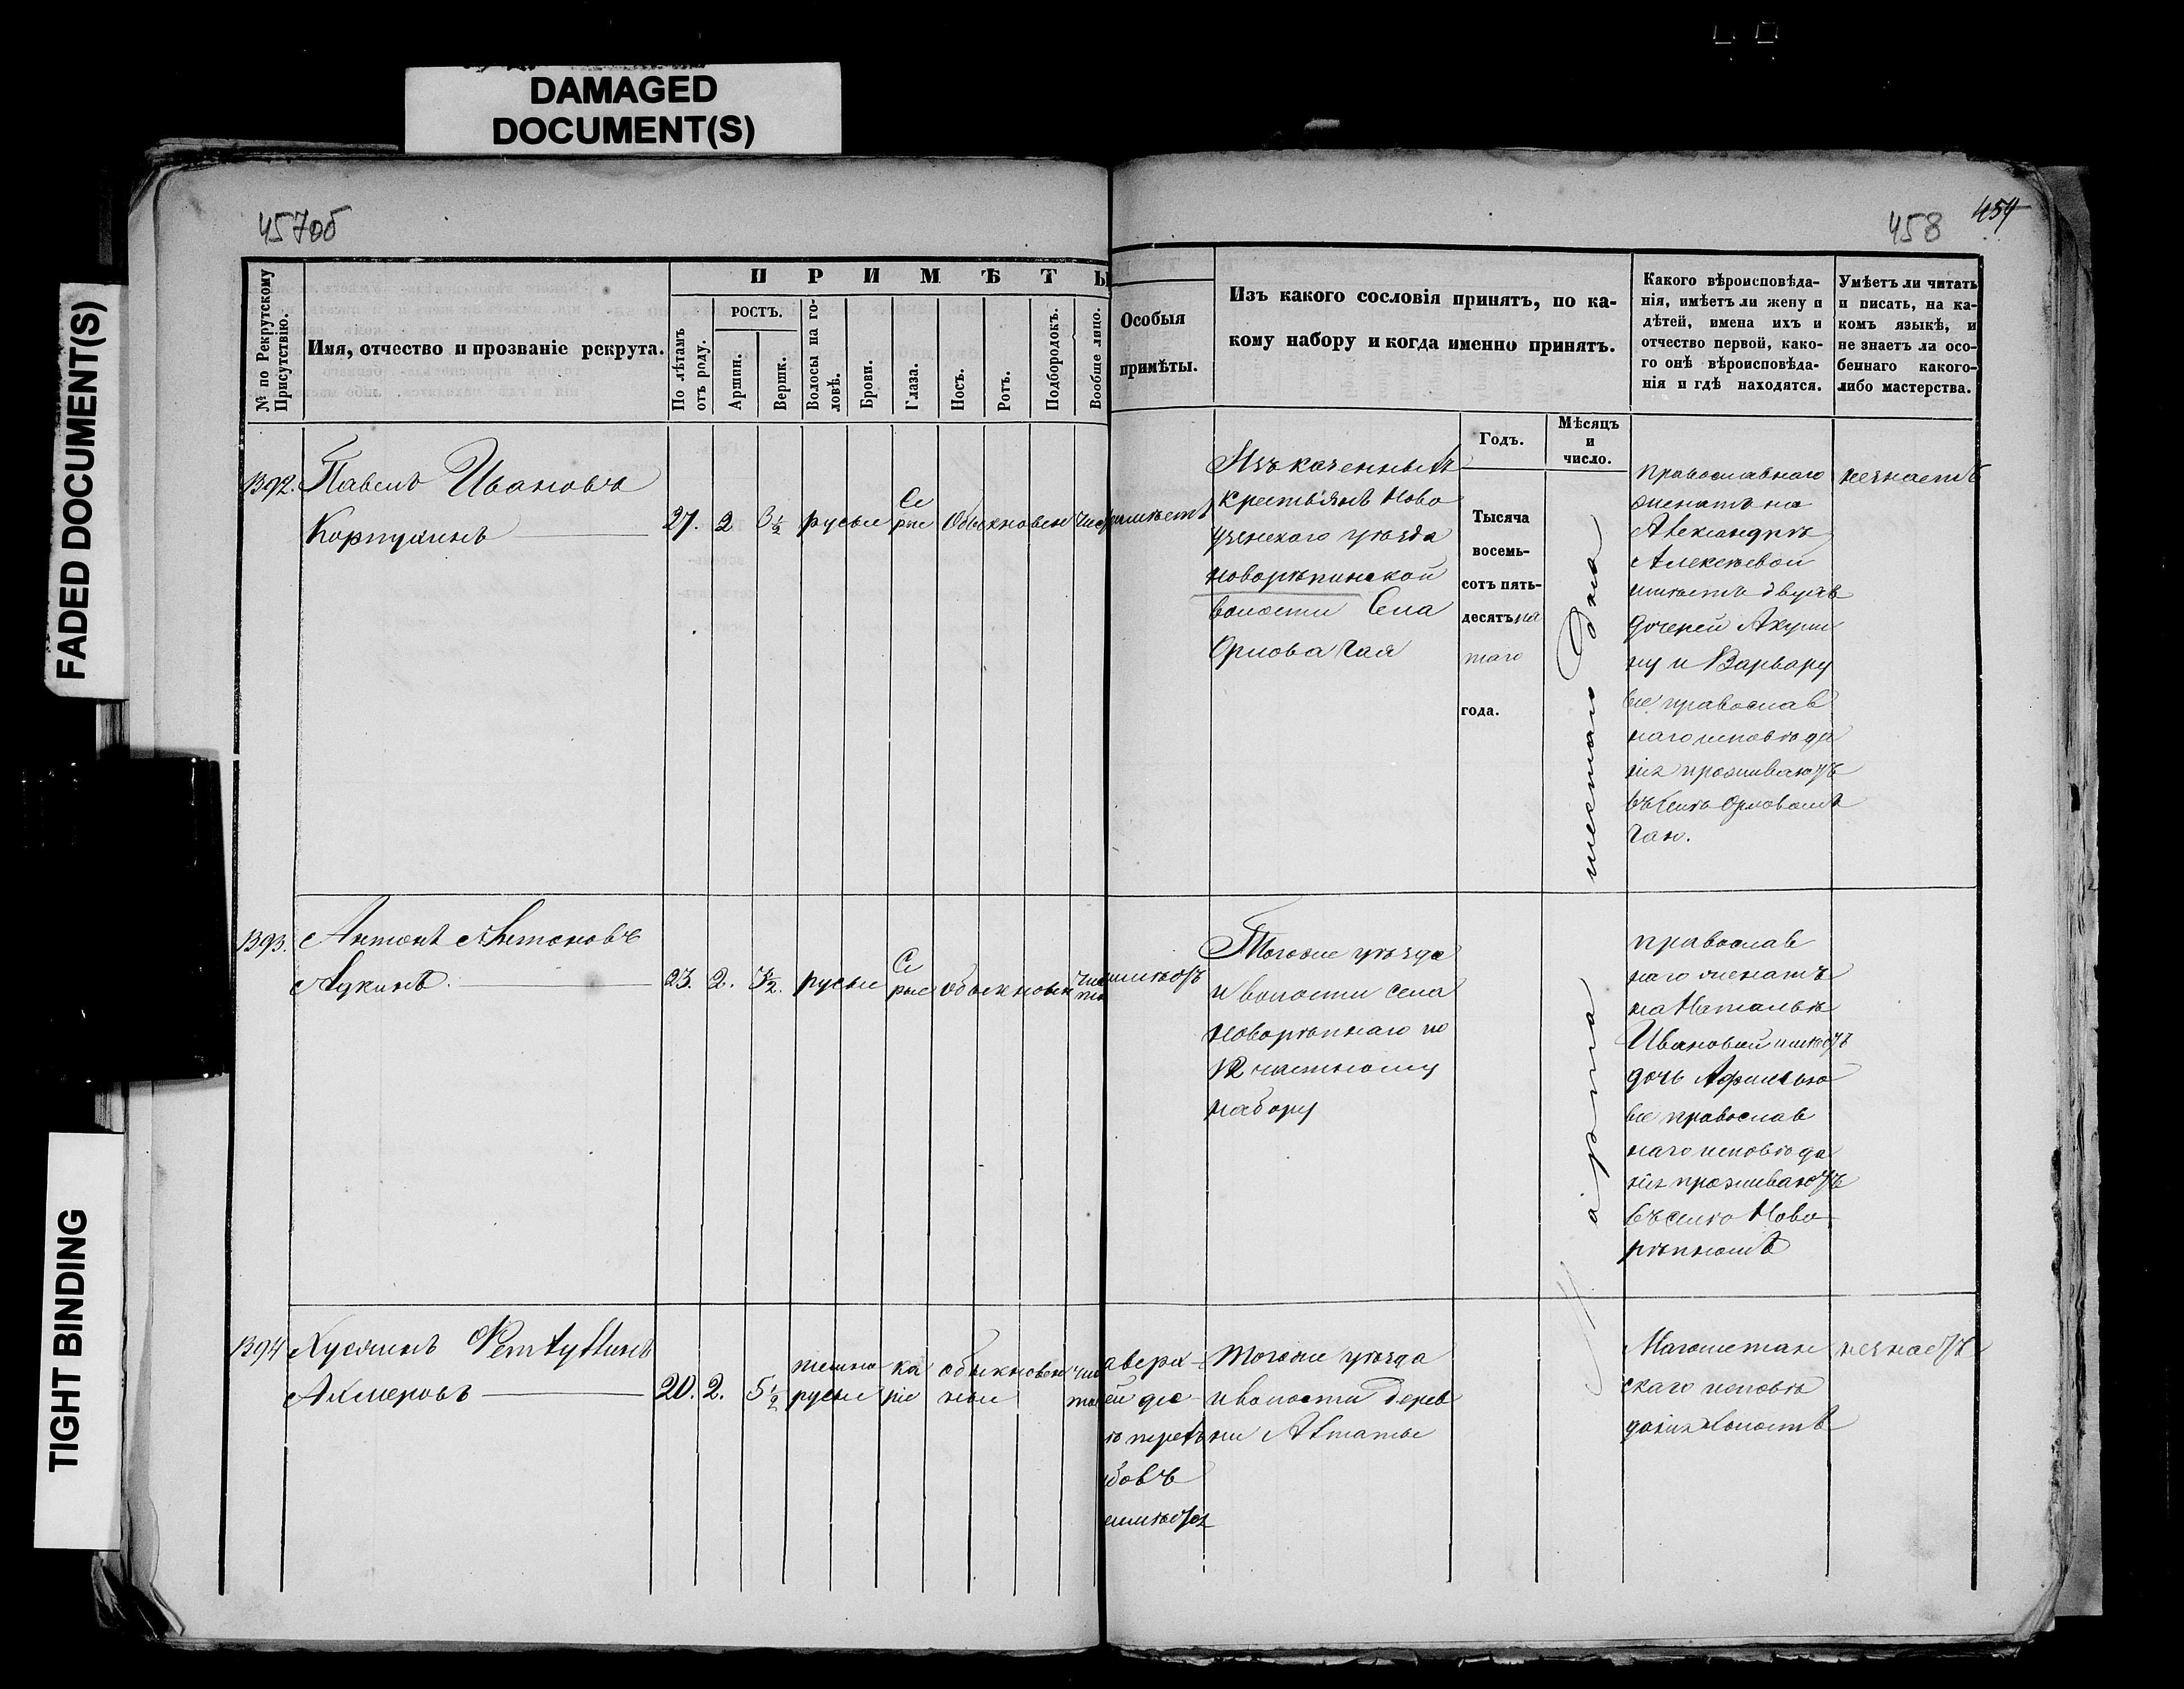 DAMAGED
DOCUMENT(S)
FADED DOCUMENT(S)
TIGHT BINDING
457об
458
454
№ по Рекрутскому
Присутствію.
Имя, отчество и прозваніе рекрута.
ПРИМѢТЫ
По лѣтамъ
отъ роду.
РОСТЪ.
Аршин.
Вершк.
Волосы на го-
ловѣ.
Брови.
Глаза.
Носъ.
Ротъ.
Подбородокъ.
Вообще лицо.
Особыя
примѣты.
Изъ какого сословія принятъ, по ка-
кому набору и когда именно принятъ.
Какого вѣроисповѣда-
нія, имѣетъ ли жену и
дѣтей, имена ихъ и
отчество первой, како-
го онѣ вѣроисповѣда-
нія и гдѣ находятся.
Умѣетъ ли читать
и писать, на ка-
комъ языкѣ, и
не знаетъ ли осо-
беннаго какого-
либо мастерства.
Годъ.
Мѣсяцъ
и
число.
1392.
Павелъ Ивановъ
Корпухинъ
27.
2
3½
русые
Се
рые
Обыкновен
чис
имѣетъ
Изъ казенныхъ
крестьянъ Ново
узенскаго уѣзда
Новорѣпинской
волости Села
Орлова Гая
Тысяча
восемь-
сотъ пять-
десятъ пя
таго
года.
Марта шестаго дня
православнаго
женатъ на
Александрѣ
Алексѣевой
имѣетъ двухъ
дочерей Акули
ну и Варвару
все православ
наго исповѣда
нія проживаютъ
въ селѣ Орловомъ
Гаю.
незнаетъ
1393.
Антонъ Антоновъ
Адкинъ.
23.
2.
3½.
русые
Се
рые
обыкновен
чис
то
имѣетъ
Тогоже уѣзда
и волости села
Новорѣпнаго по
12 частному
набору
православ
наго женатъ
на Натальѣ
Ивановой имѣетъ
дочь Афимью
все православ
наго исповѣда
нія проживаютъ
въ селѣ Ново
рѣпномъ
1394
Хусяинъ
Ахмеровъ
20.
2.
5½
темно
русые
ка
ріе
обыкновен
ные
чис
то
Тогоже уѣзда
и волости дерев
ни Алтаты
Магометан
скаго исповѣ
данія холостъ
незнаетъ